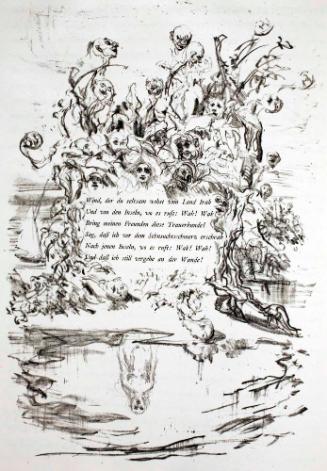 Wind, der du seltsam wehst vom Land herab
Und von den Inseln, wo es ruft: Wak! Wak!
Bring meinen Freunden diese Trauerkunde!
Sag, daß ich vor dem Sehnsuchtsschmerz erschrak
Nach jenen Inseln, wo es ruft: Wak! Wak!
Und daß ich still vergehe an der Wunde!